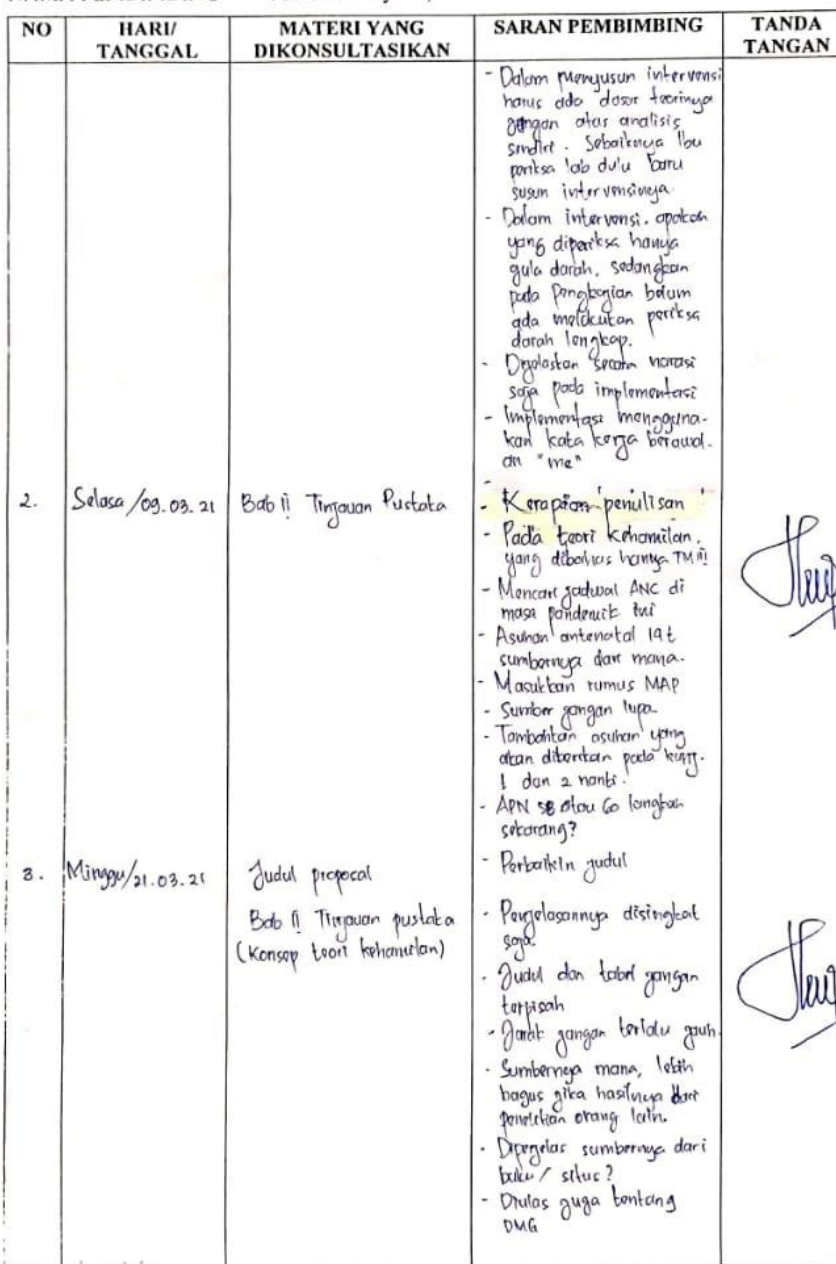 NO
HARI/
TANGGAL
MATERI YANG
DIKONSULTASIKAN
SARAN PEMBIMBING
TANDA
TANGAN
- Dalam menyusun intervensi
harus ada dasar teorinya
jangan atas analisis
sendiri. Sebaiknya Ibu
periksa lab dulu baru
susun intervensinya.
- Dalam intervensi. apakah
yang diperiksa hanya
gula darah, sedangkan
pada pengkajian belum
ada melakukan periksa
darah lengkap.
- Dijelaskan secara narasi
saja pada implementasi
- Implementasi mengguna-
kan kata kerja berawal-
an "me"
2.
Selasa /09.03.21
Bab II Tinjauan Pustaka
- Kerapian penulisan
- Pada teori kehamilan,
yang dibahas hanya TM III
- Mencari jadwal ANC di
masa pandemik ini
- Asuhan antenatal 14t
sumbernya dari mana.
- Masukkan rumus MAP
- Sumber jangan lupa
- Tambahkan asuhan yang
akan diberikan pada kunj.
1 dan 2 nanti.
- APN 58 atau 60 langkah
sekarang?
3.
Minggu/21.03.21
Judul proposal
- Perbaikin judul
Bab II Tinjauan pustaka
(Konsep teori kehamilan)
- Penjelasannya disingkat
saja
- Judul dan tabel jangan
terpisah
- Jarak jangan terlalu jauh.
- Sumbernya mana, lebih
bagus jika hasilnya dari
penelitian orang lain.
- Diperjelas sumbernya dari
buku / situs?
- Diulas juga tentang
DMG